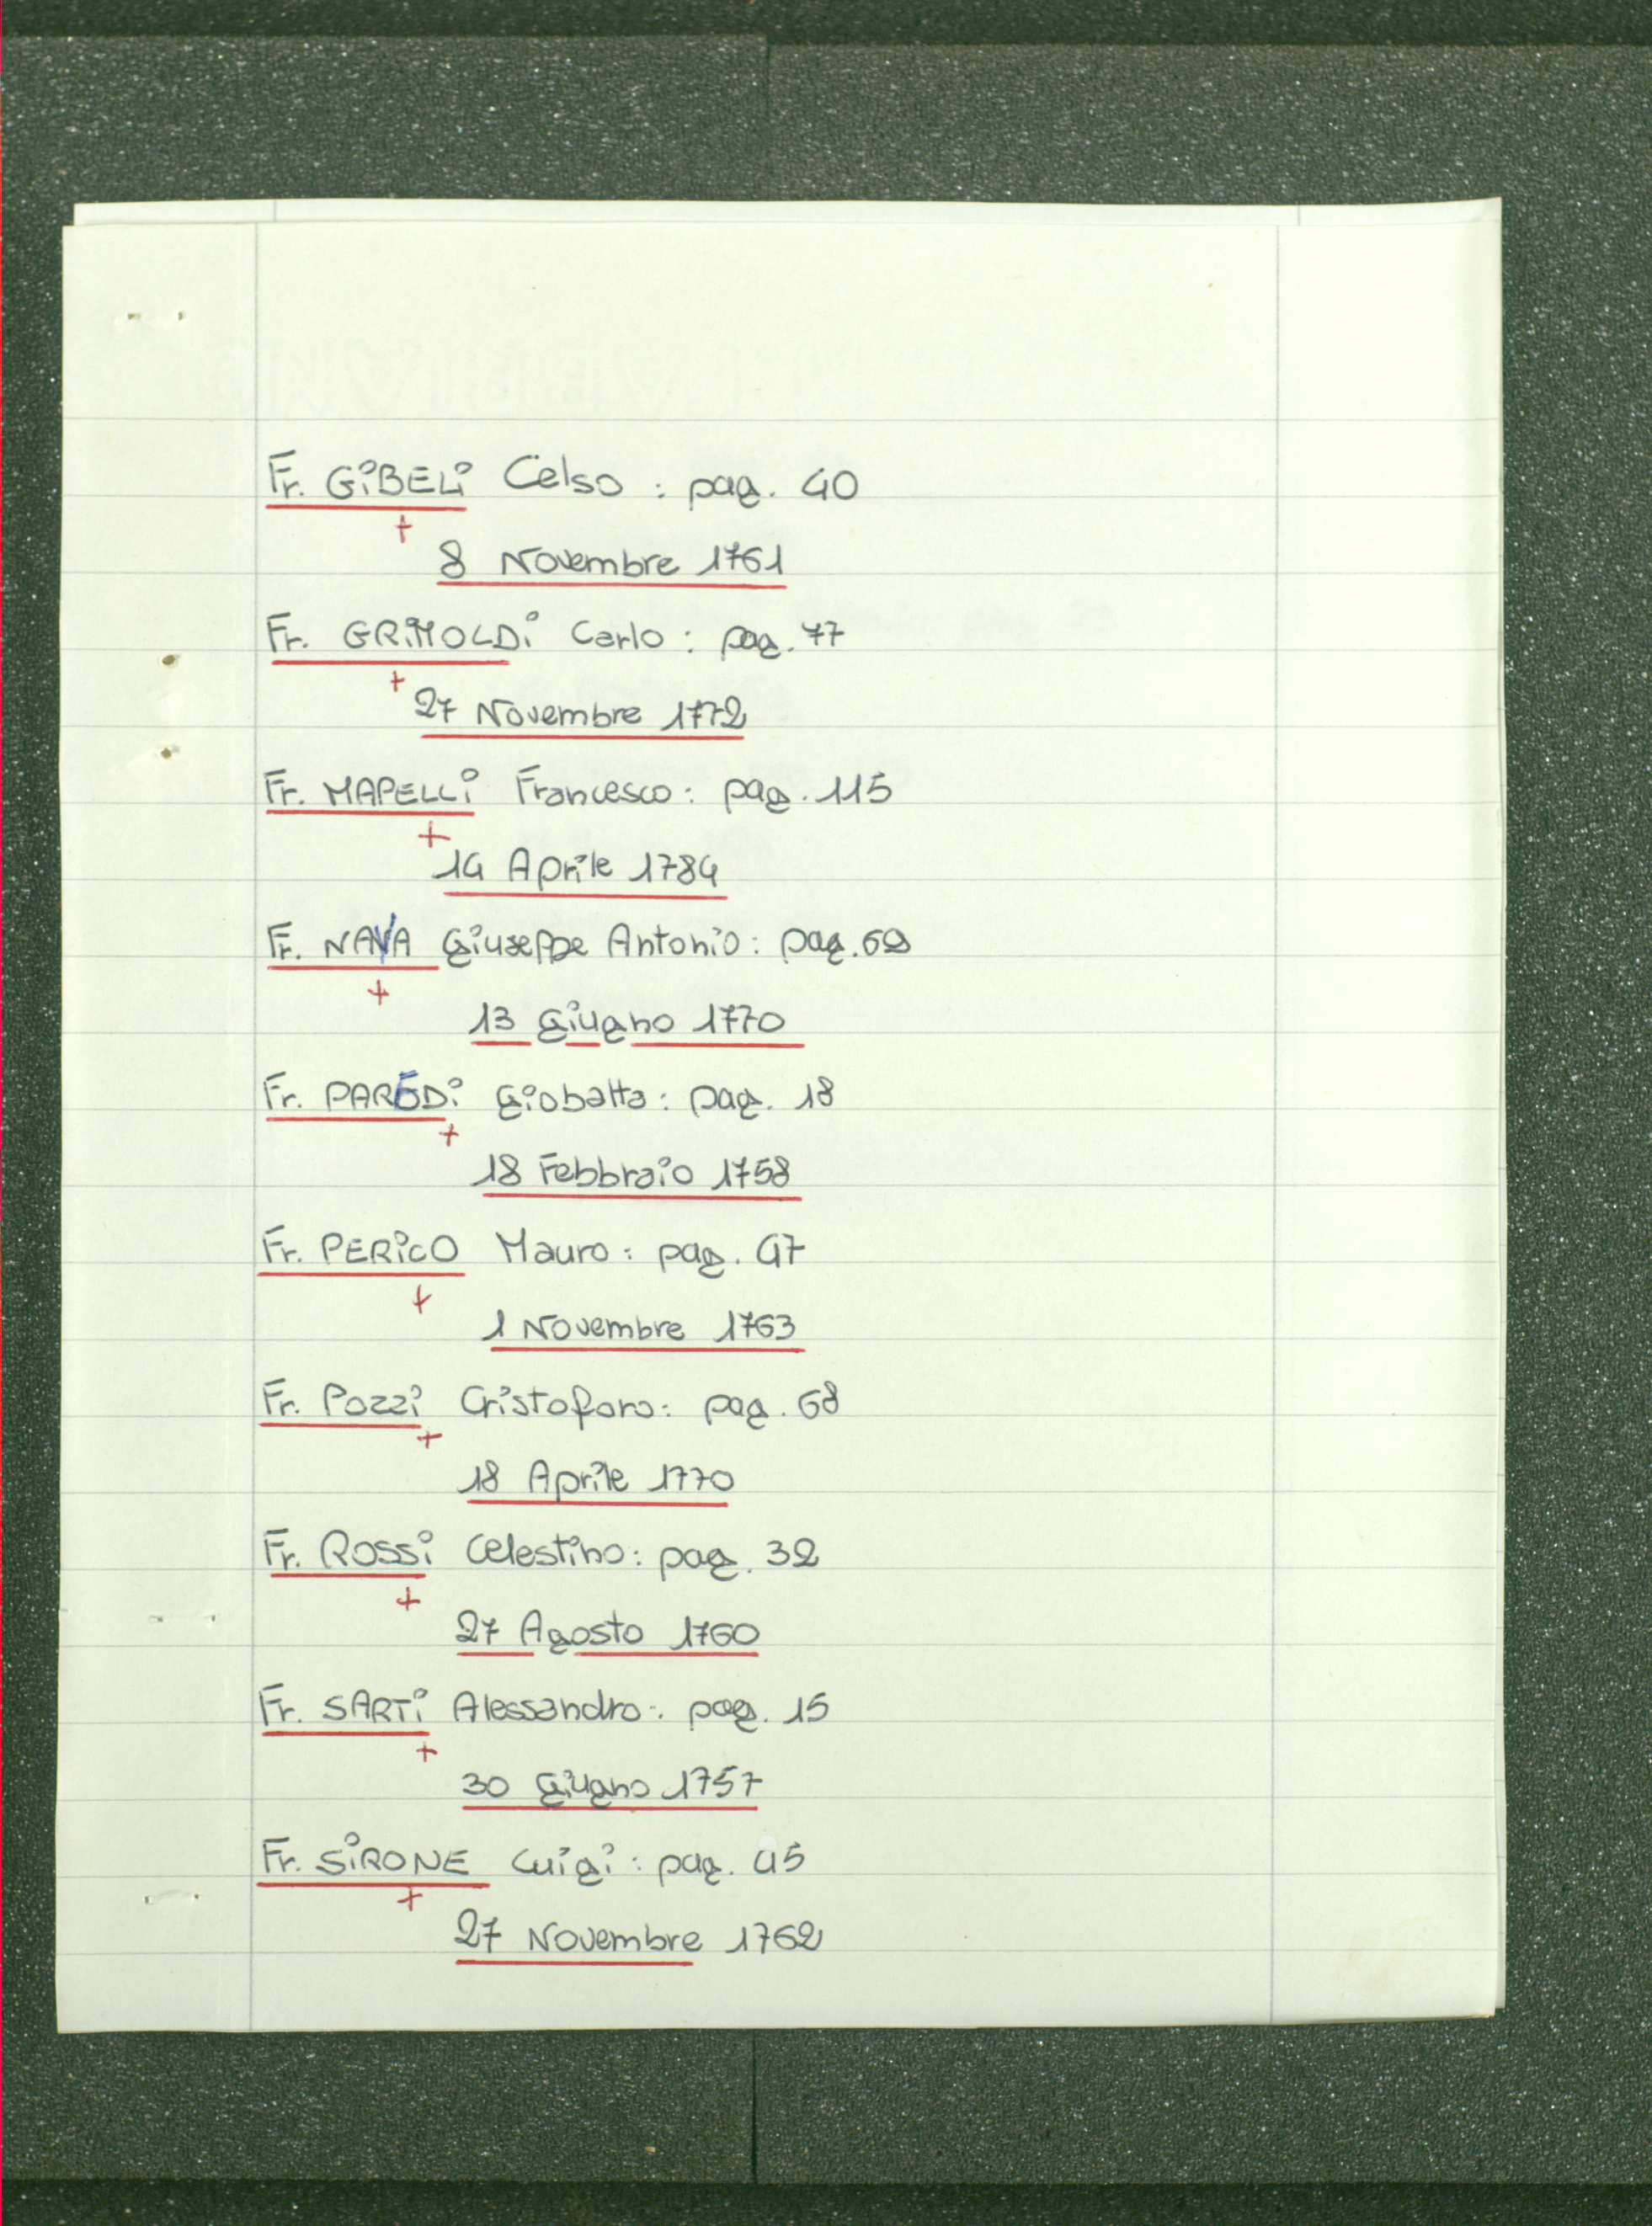 Fr. GiBELi Celso : pag. 40
+
8 Novembre 1761
Fr. GRiMOLDi Carlo : pag. 77
+
27 Novembre 1772
Fr. MAPELLi Francesco : pag. 115
+
14 Aprile 1784
Fr. NAVA Giuseppe Antonio : pag. 69
+
13 Giugno 1770
Fr. PAREDi Giobatta : pag. 18
+
18 Febbraio 1758
Fr. PERiCO Mauro : pag. 47
+
1 Novembre 1763
Fr. Pozzi Cristoforo : pag. 68
+
18 Aprile 1770
Fr. ROSSi Celestino : pag. 32
+
27 Agosto 1760
Fr. SARTi Alessandro : pag. 15
+
30 Giugno 1757
Fr. SiRONE Luigi : pag. 45
+
27 Novembre 1762